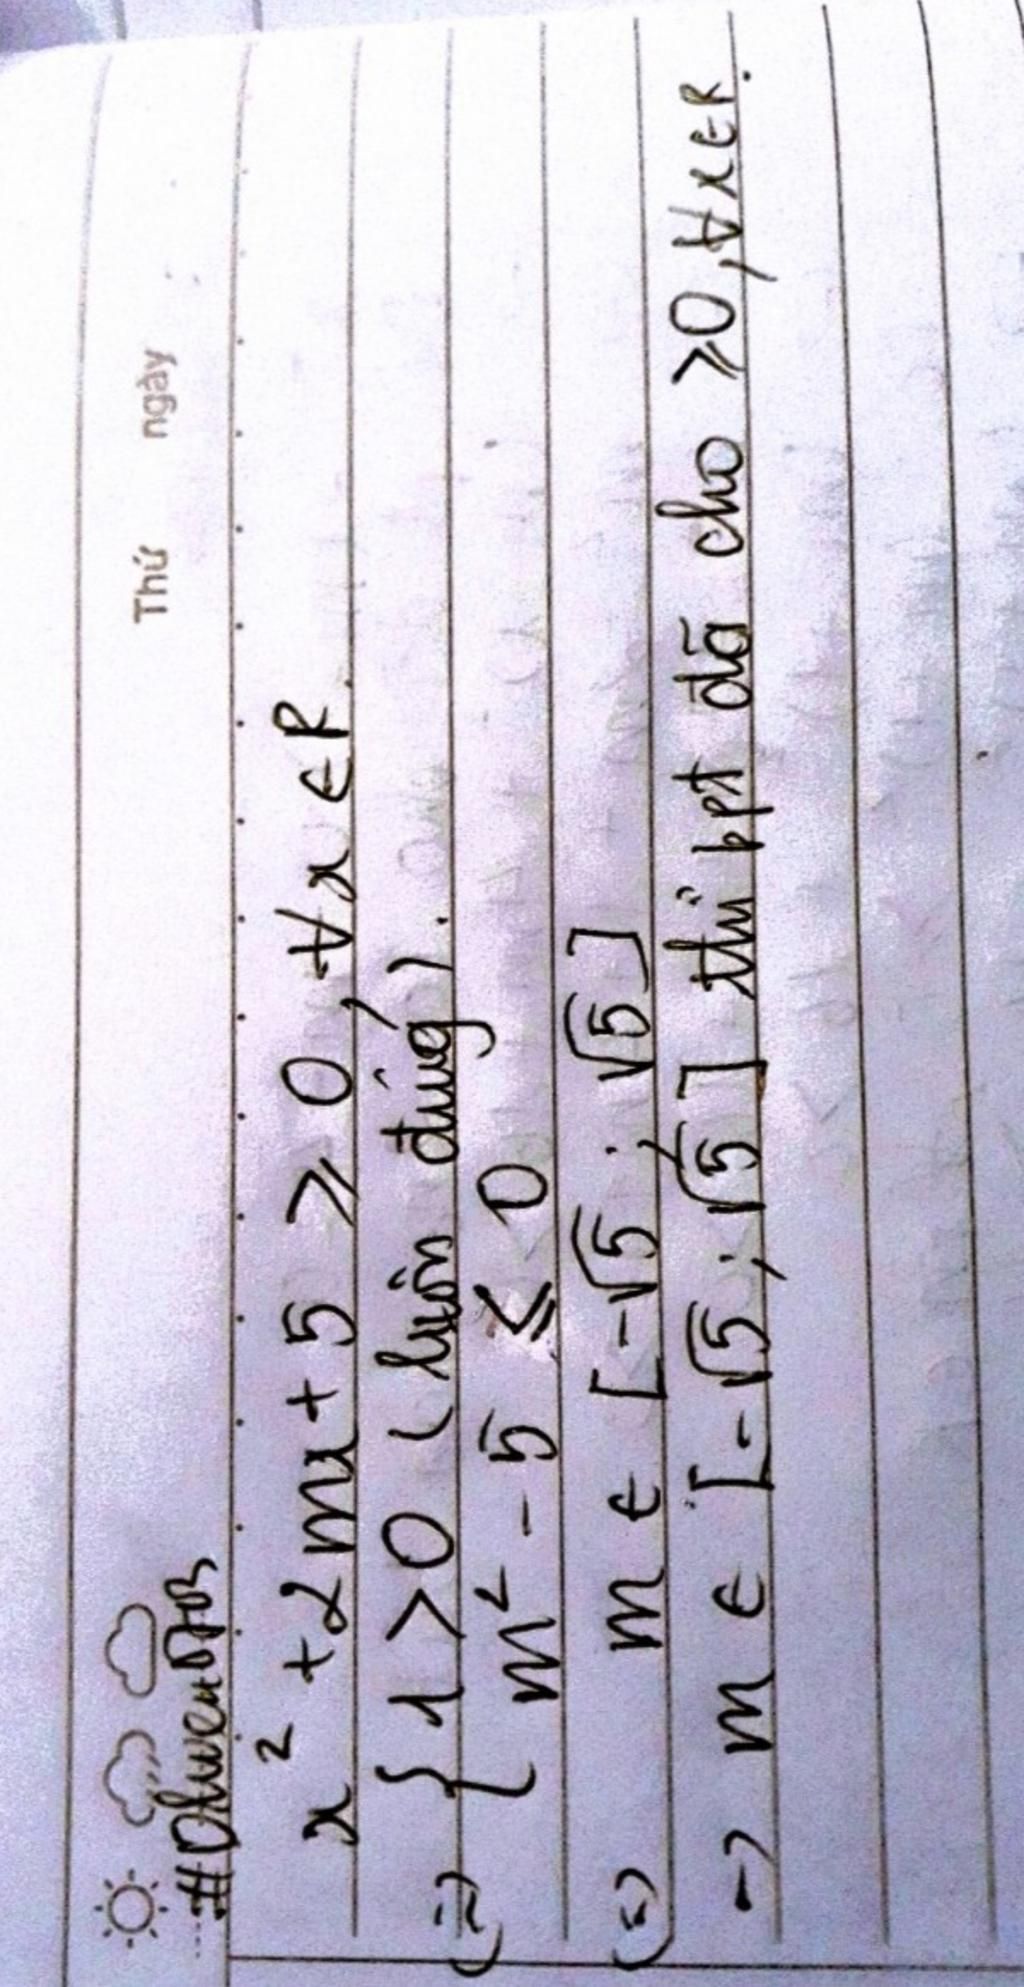 Thứ ngày
x² + 2mx + 5 ≥ 0, ∀x ∈ R
(=) { 1 > 0 (luôn đúng).
m² - 5 ≤ 0
(=) m ∈ [-√5; √5]
-> m ∈ [-√5; √5] thì bpt đã cho ≥ 0, ∀x ∈ R.